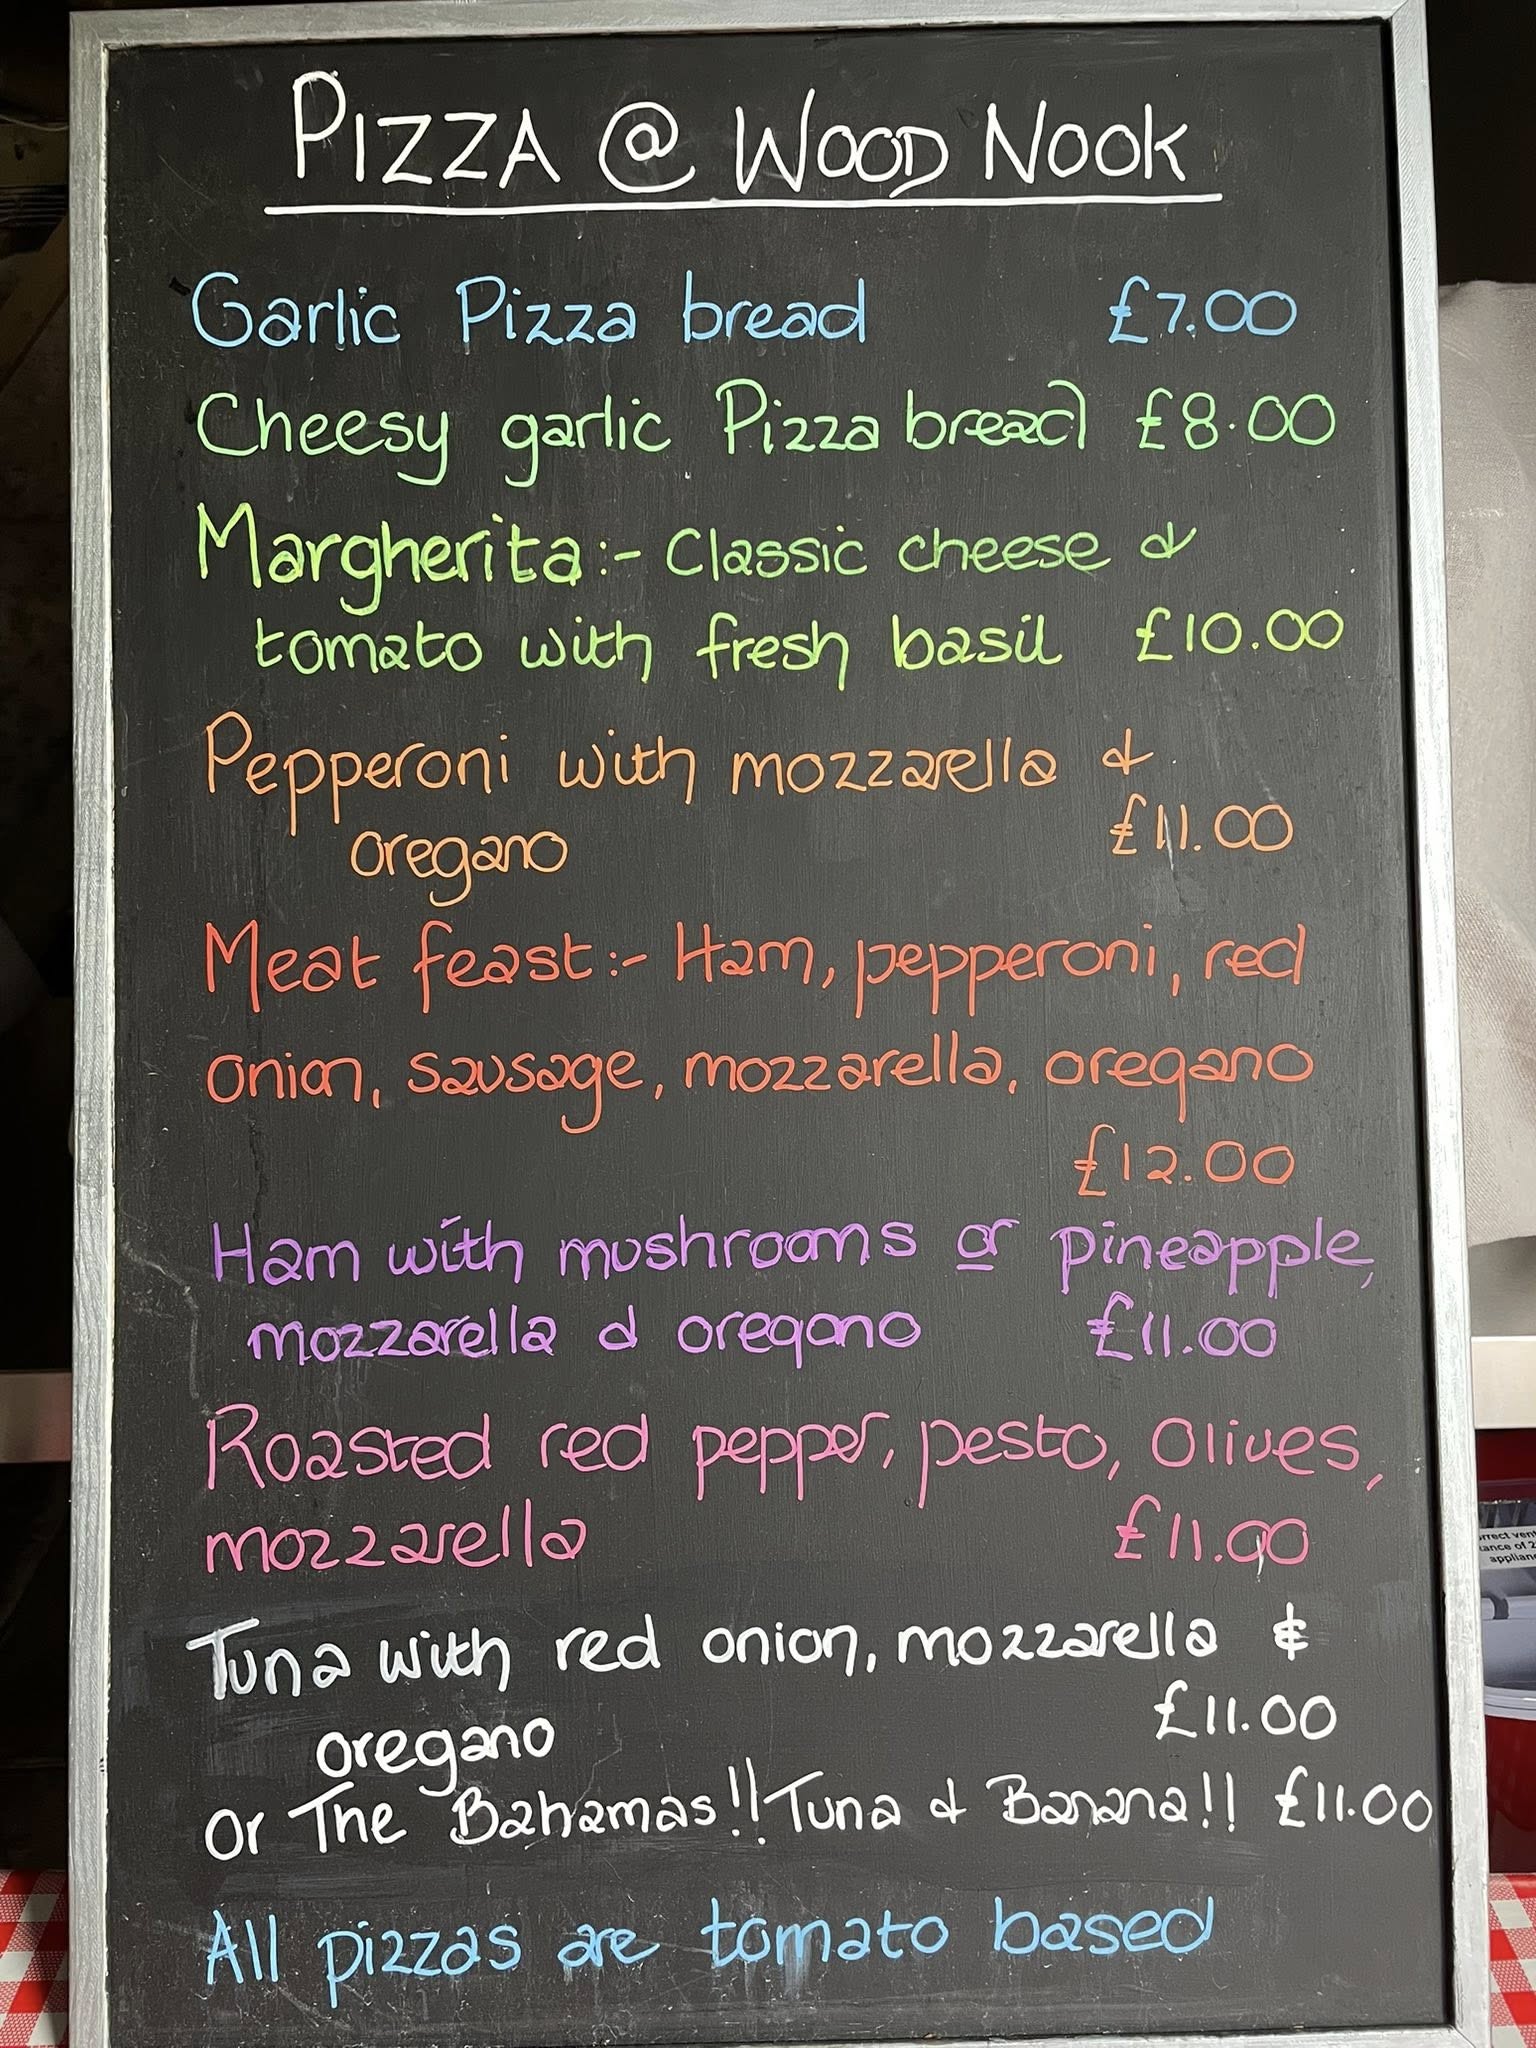 PIZZA @ WOOD NOOK
Garlic Pizza bread £7.00
Cheesy garlic Pizza bread £8.00
Margherita:- Classic cheese &
tomato with fresh basil £10.00
Pepperoni with mozzarella &
oregano £11.00
Meat feast:- Ham, pepperoni, red
onion, sausage, mozzarella, oregano
£12.00
Ham with mushrooms or pineapple,
mozzarella & oregano £11.00
Roasted red pepper, pesto, Olives,
mozzarella £11.00
Tuna with red onion, mozzarella &
oregano £11.00
Or The Bahamas!! Tuna & Banana!! £11.00
All pizzas are tomato based